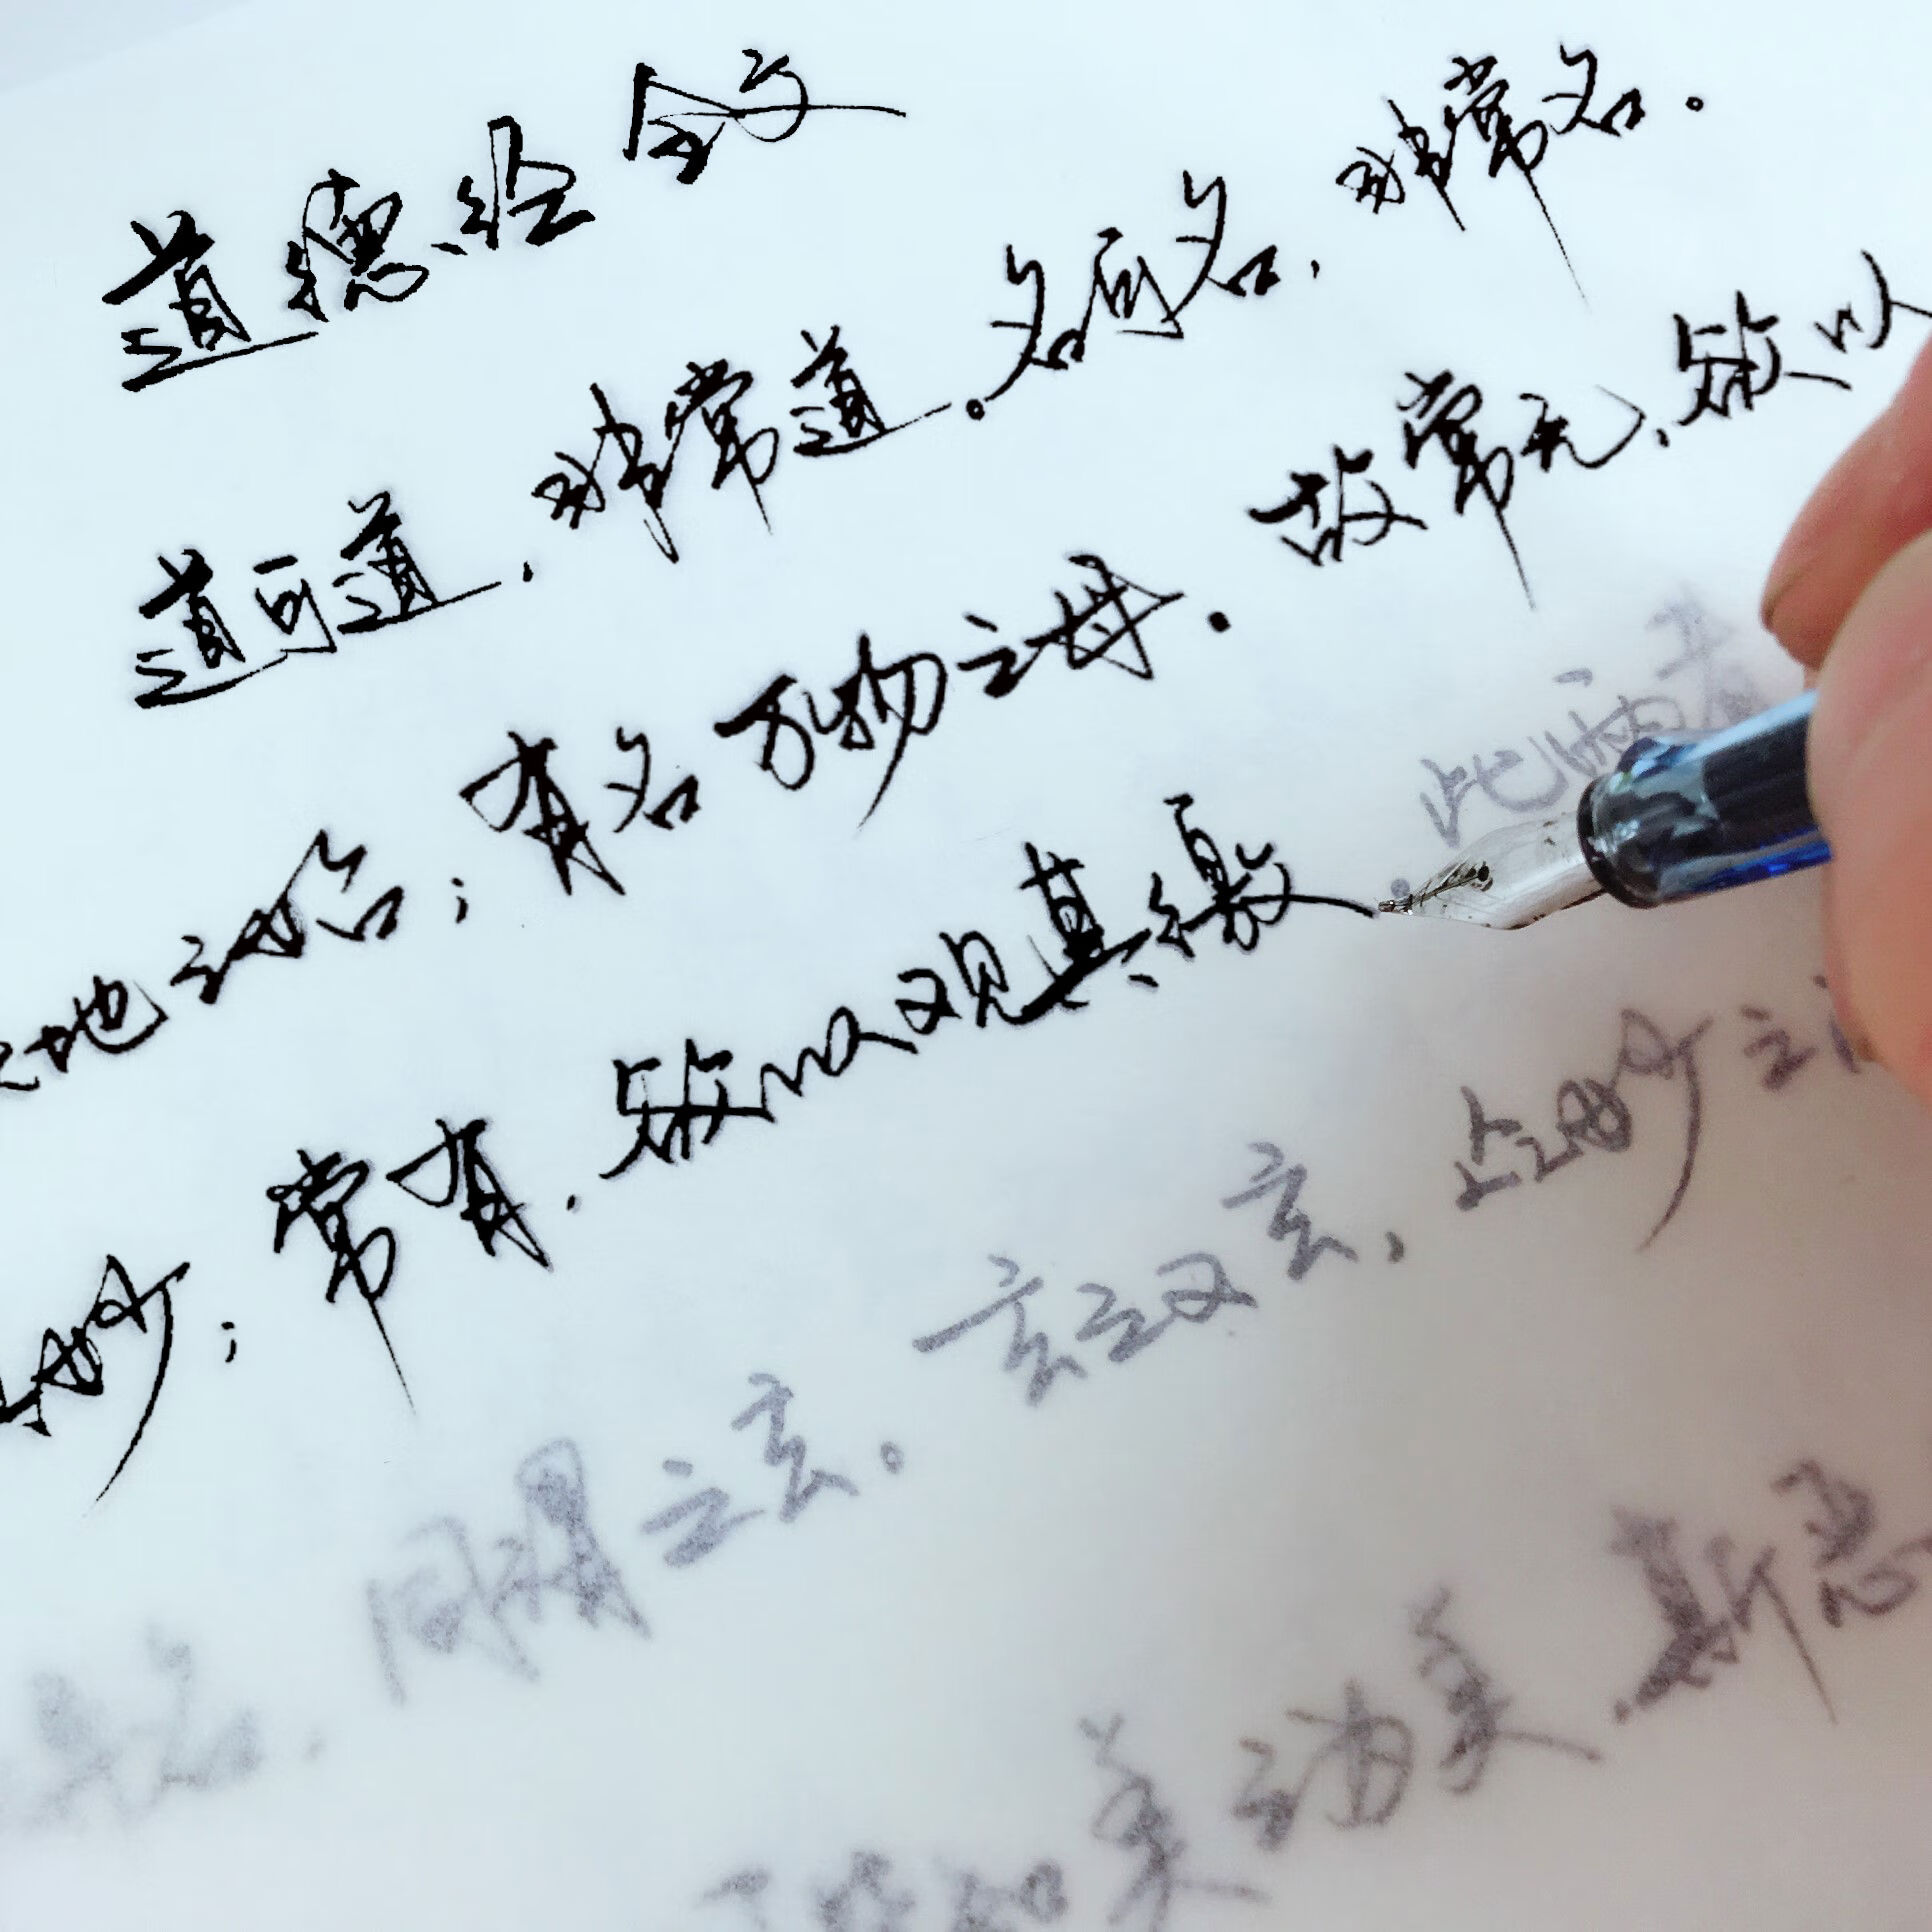 道德经全文
道可道，非常道。名可名，非常名。
地之始；有名万物之母。故常无，欲以
妙；常有，欲以观其徼 此两者
名，同谓之玄。玄之又玄，众妙之
皆知美之为美，斯恶